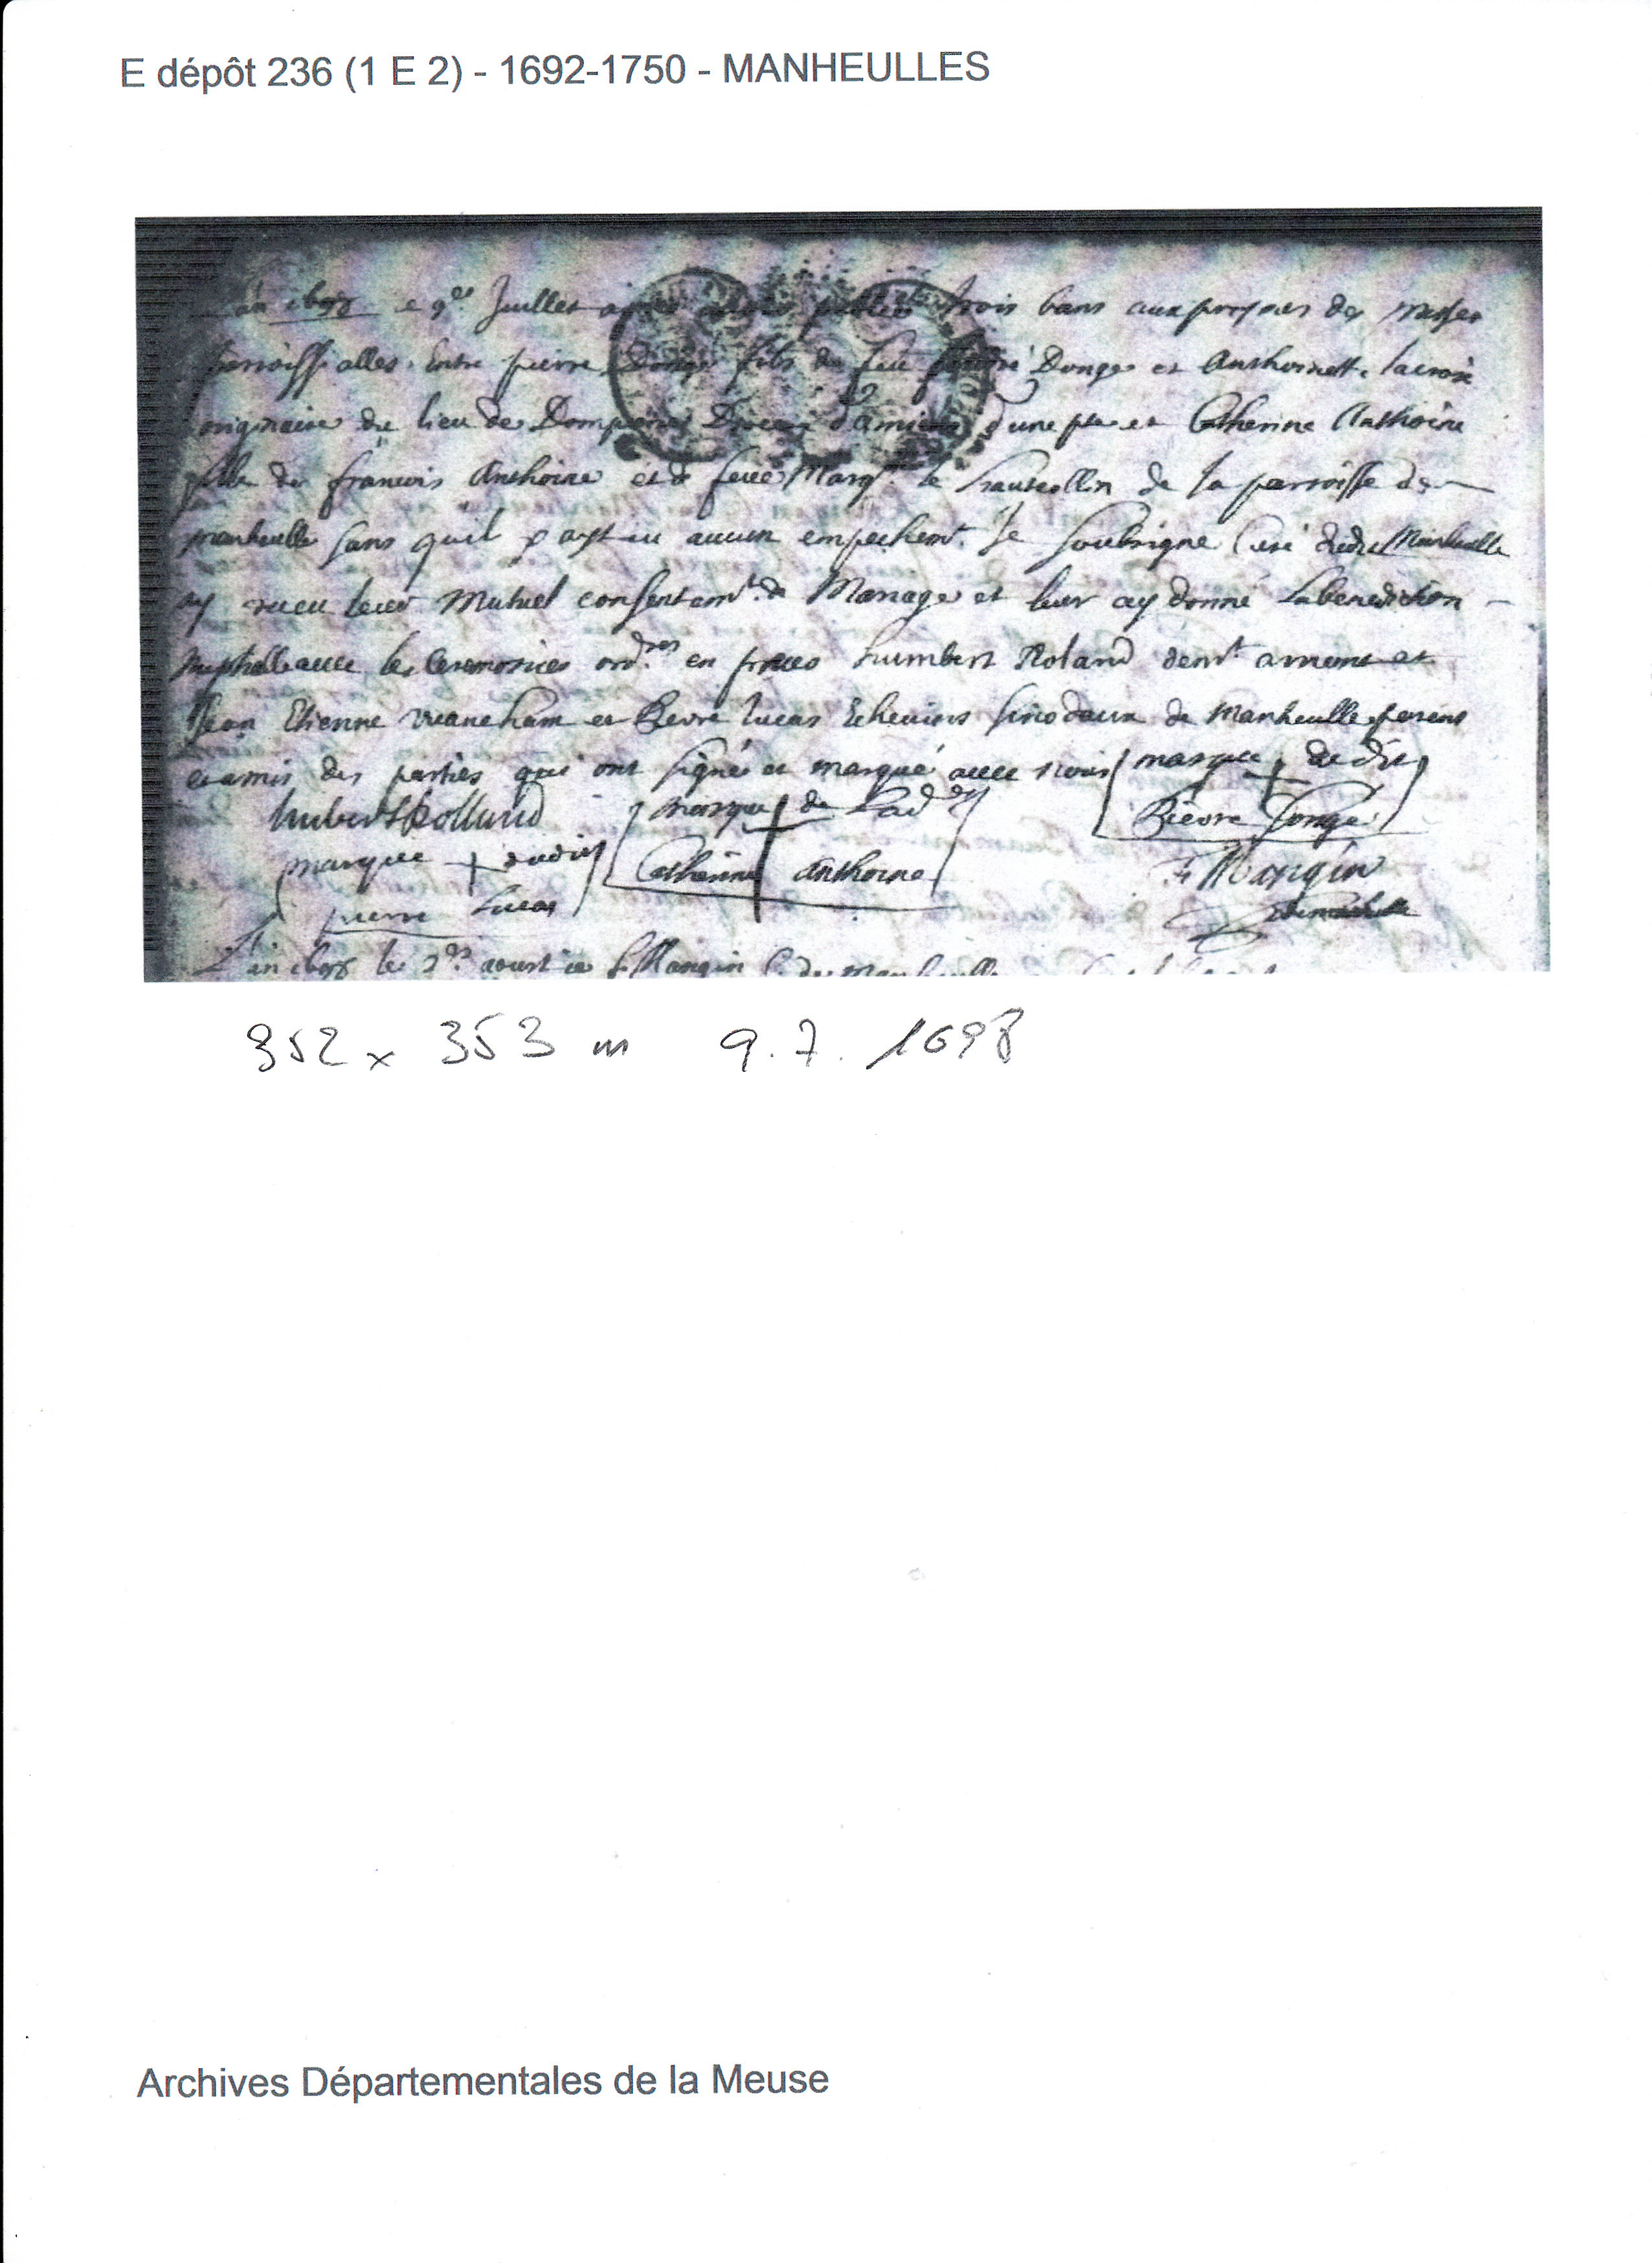 E dépôt 236 (1 E 2) - 1692-1750 - MANHEULLES
L'an le 9e Juillet après publié trois bans aux prosnes des messes
parroissialles Entre pierre Donge fils de feu Donge et Anthoinette Lacroix
originaire du lieu de d'amiens d'une pte et Catherine Anthoine
fille de francois Anthoine et de feue Margte de la parroisse de
manheulle sans quil y ayt eu aucun empechemt. Je soubsigne Curé dudit Manheulle
ay receu leur Mutuel consentemt. de Mariage et leur ay donné La benediction
nuptialle avec les Ceremonies ordres en humbert Roland demt. a et
Jean Etienne et Pierre lucas Echevins sinodaux de Manheulle parens
et amis des parties qui ont signé et marqué avec nous marque + dudit
hubert Rolland marque + de Ladte Pierre Donge
marque + dudit Catherine Anthoine F Mangin
pierre Lucas
L'an le 2e aoust je F. Mangin C. de Manheulle
352 x 353 m 9.7.1698
Archives Départementales de la Meuse